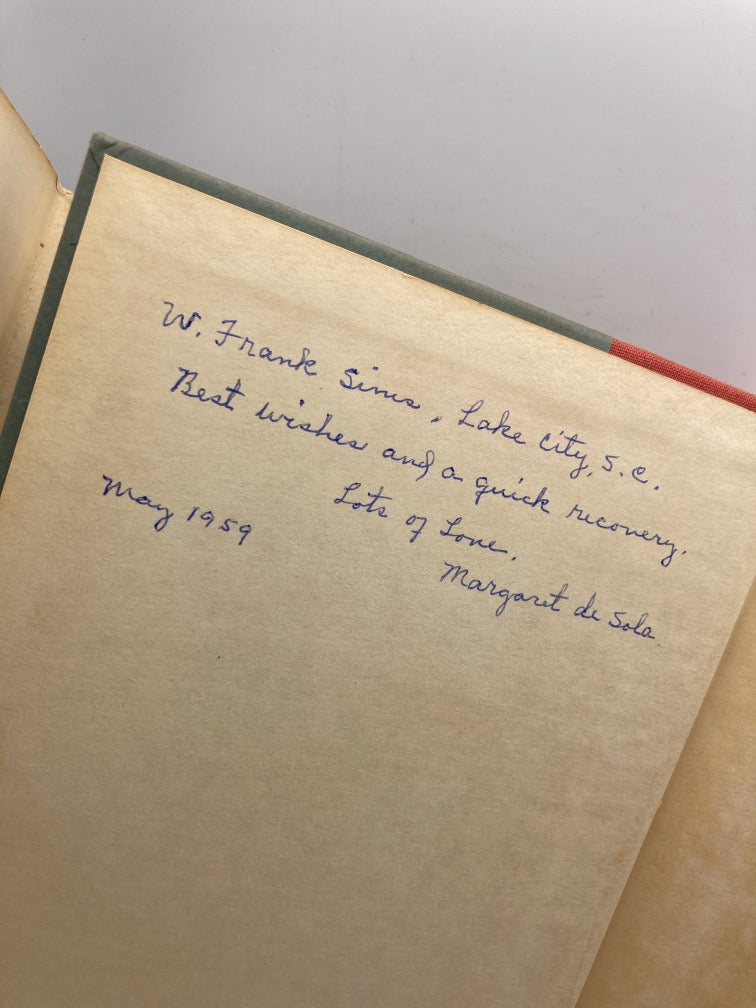 W. Frank Sims, Lake City, S.C.
Best wishes and a quick recovery.
Lots of Love,
May 1959
Margaret de Sola